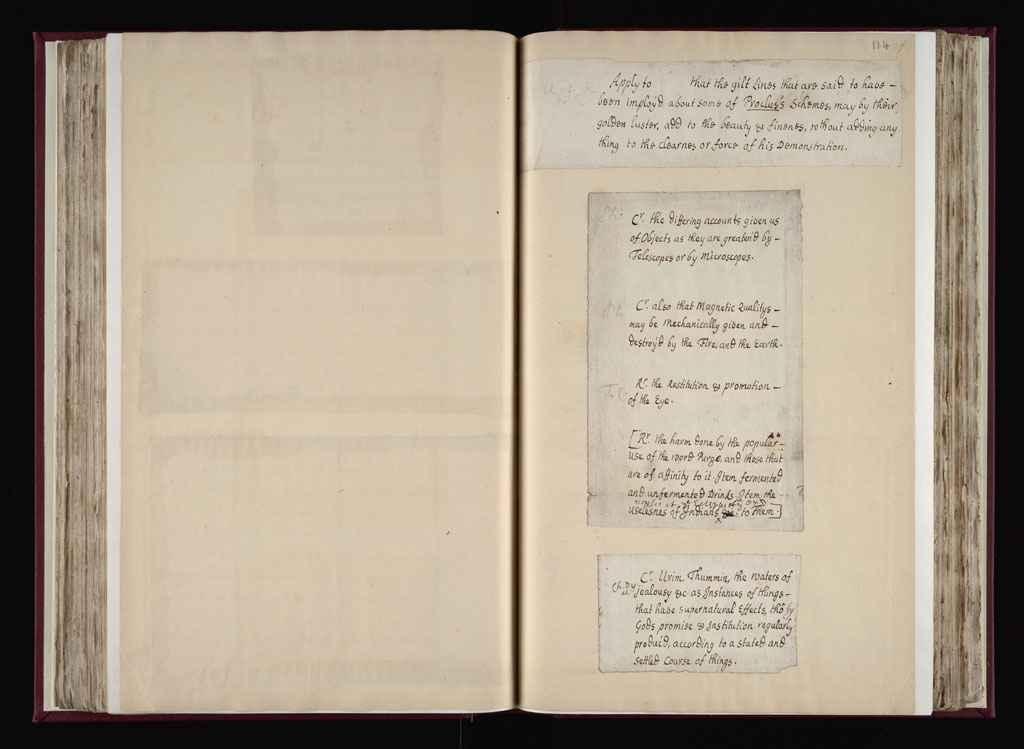 114
Apply to that the gilt Lines that are said to have –
been imploy'd about some of Proclus's Schemes, may by their
golden luster, add to the beauty & finenes, without adding any
thing to the clearnes or force of his Demonstration.
Ph.
Cr. the differing accounts given us
of Objects as they are greaten'd by –
Telescopes or by Microscopes.
Ph.
Cr. also that Magnetic Qualitys –
may be Mechanically given and –
destroy'd by the Fire, and the Earth.
Rr. the Restitution & promotion –
of the Eye.
[Rr. the harm done by the popular –
use of the word Purge, and those that
are of affinity to it. Item fermented
and unfermented Drinks. Item the
Uselesnes of Indians to Them.]
Cr. Urim, Thummin, the waters of
Jealousy &c. as Instances of things –
that have supernatural Effects, thô by
Gods promise & Institution regularly
produc'd, according to a stated and
settled Course of things.